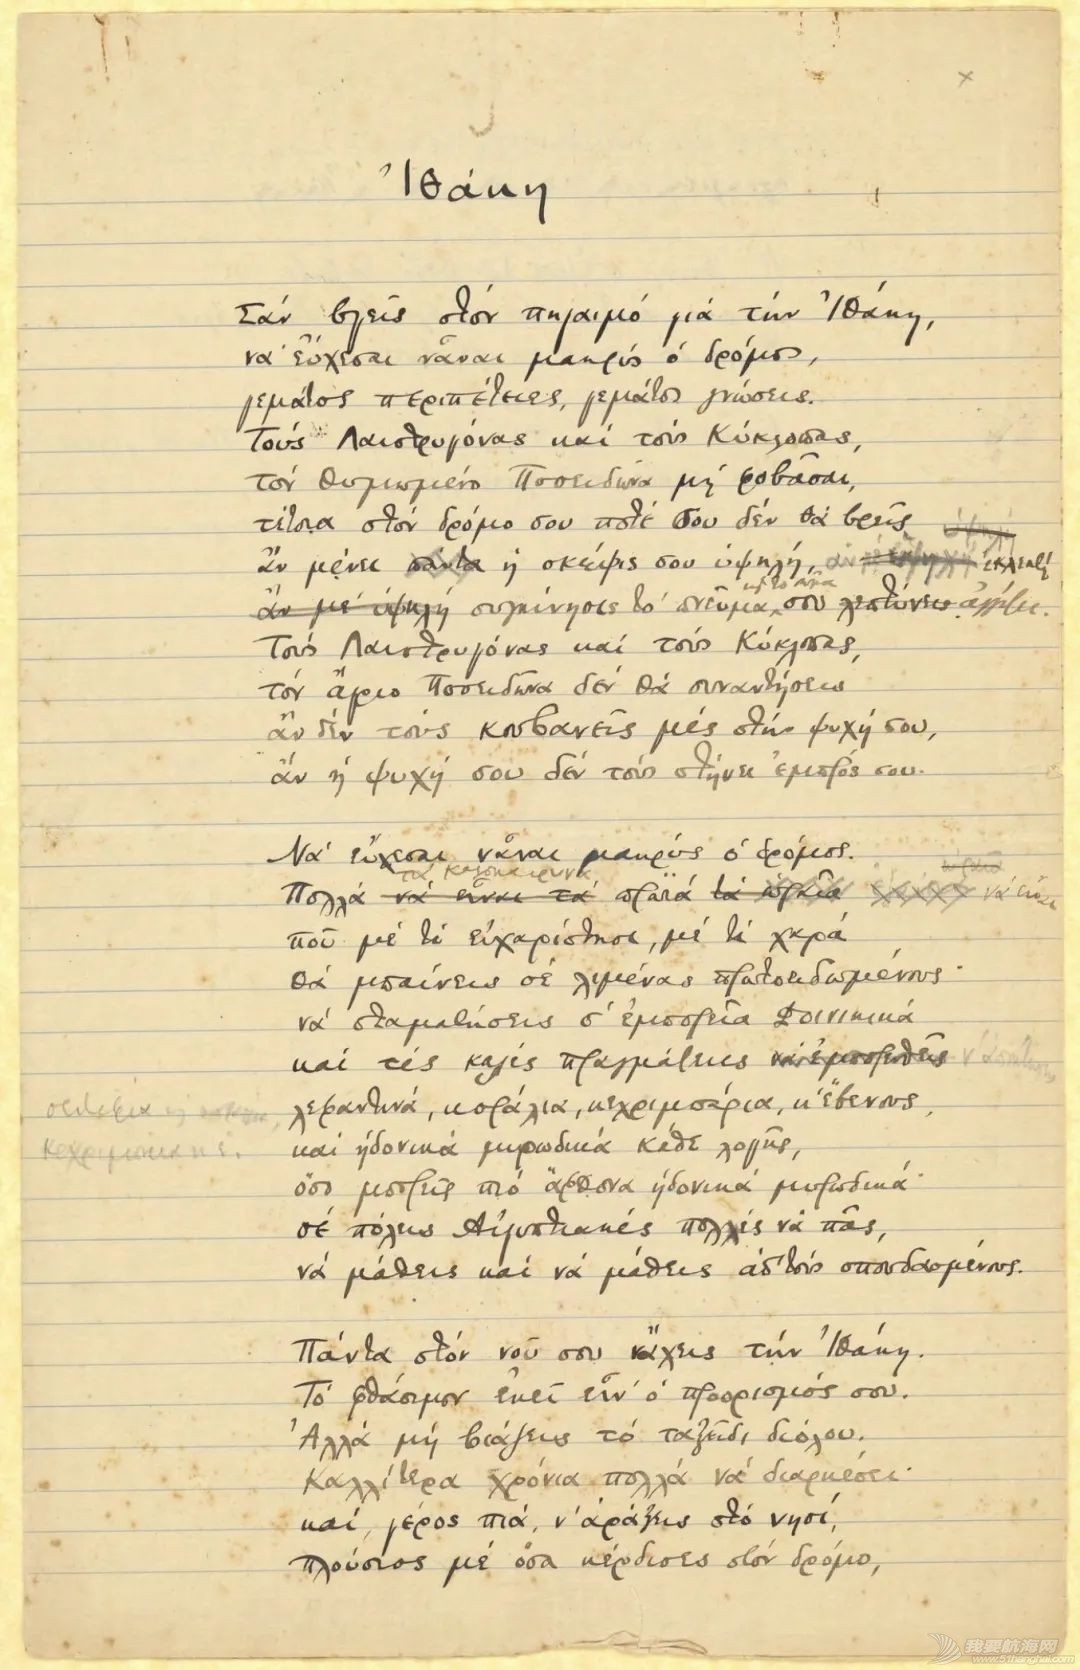 Ἰθάκη
Σάν βγεῖς στόν πηγαιμό γιά τήν Ἰθάκη,
νά εὔχεσαι νἆναι μακρύς ὁ δρόμος,
γεμάτος περιπέτειες, γεμάτος γνώσεις.
Τούς Λαιστρυγόνας καί τούς Κύκλωπας,
τόν θυμωμένο Ποσειδῶνα μή φοβᾶσαι,
τέτοια στόν δρόμο σου ποτέ σου δέν θά βρεῖς
ὑψηλή
ἄν μένει πάντα ἡ σκέψις σου ὑψηλή, ἄν ἐκλεκτή
ἄν μέ ὑψηλή συγκίνησις τό πνεῦμα σου ἀγγίζει.
Τούς Λαιστρυγόνας καί τούς Κύκλωπας,
τόν ἄγριο Ποσειδῶνα δέν θά συναντήσεις
ἄν δέν τούς κουβανεῖς μές στήν ψυχή σου,
ἄν ἡ ψυχή σου δέν τούς στήνει ἐμπρός σου.
Νά εὔχεσαι νἆναι μακρύς ὁ δρόμος.
τά καλοκαιρινά
Πολλά νά εἶναι τά πρωϊά νά εἶναι
πού μέ τί εὐχαρίστησι, μέ τί χαρά
θά μπαίνεις σέ λιμένας πρωτοειδωμένους·
νά σταματήσεις σ' ἐμπορεῖα Φοινικικά
καί τές καλές πραγμάτειες ν' ἀποκτήσεις
σεντέφια
λεφαντινά, κοράλια, κεχριμπάρια, κ' ἔβενους,
καί ἡδονικά μυρωδικά κάθε λογῆς,
ὅσο μπορεῖς πιό ἄφθονα ἡδονικά μυρωδικά·
σέ πόλεις Αἰγυπτιακές πολλές νά πᾶς,
νά μάθεις καί νά μάθεις ἀπ' τούς σπουδασμένους.
Πάντα στόν νοῦ σου νἄχεις τήν Ἰθάκη.
Τό φθάσιμον ἐκεῖ εἶν' ὁ προορισμός σου.
Ἀλλά μή βιάζεις τό ταξεῖδι διόλου.
Καλλίτερα χρόνια πολλά νά διαρκέσει·
καί, γέρος πιά, ν' ἀράξεις στό νησί,
πλούσιος μέ ὅσα κέρδισες στόν δρόμο,
我要航海网
www.51hanghai.com